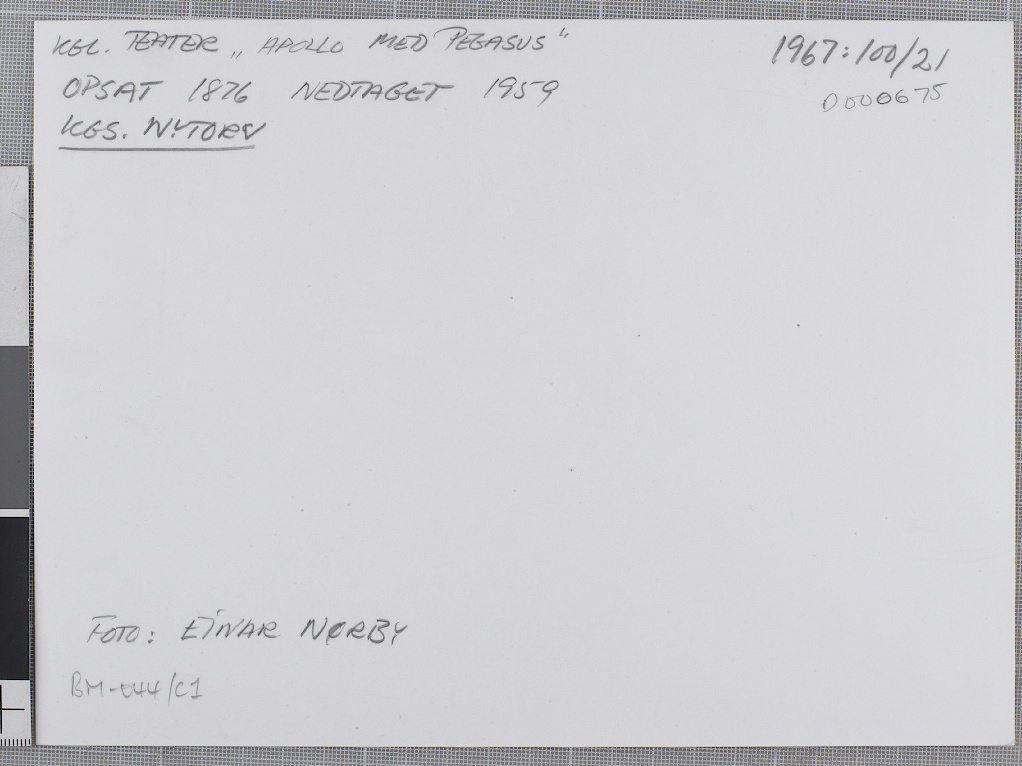 KGL. TEATER „APOLLO MED PEGASUS“
OPSAT 1876 NEDTAGET 1959
KGS. NYTORV
1967:100/21
D000675
FOTO: EJNAR NØRBY
BM-044/C1